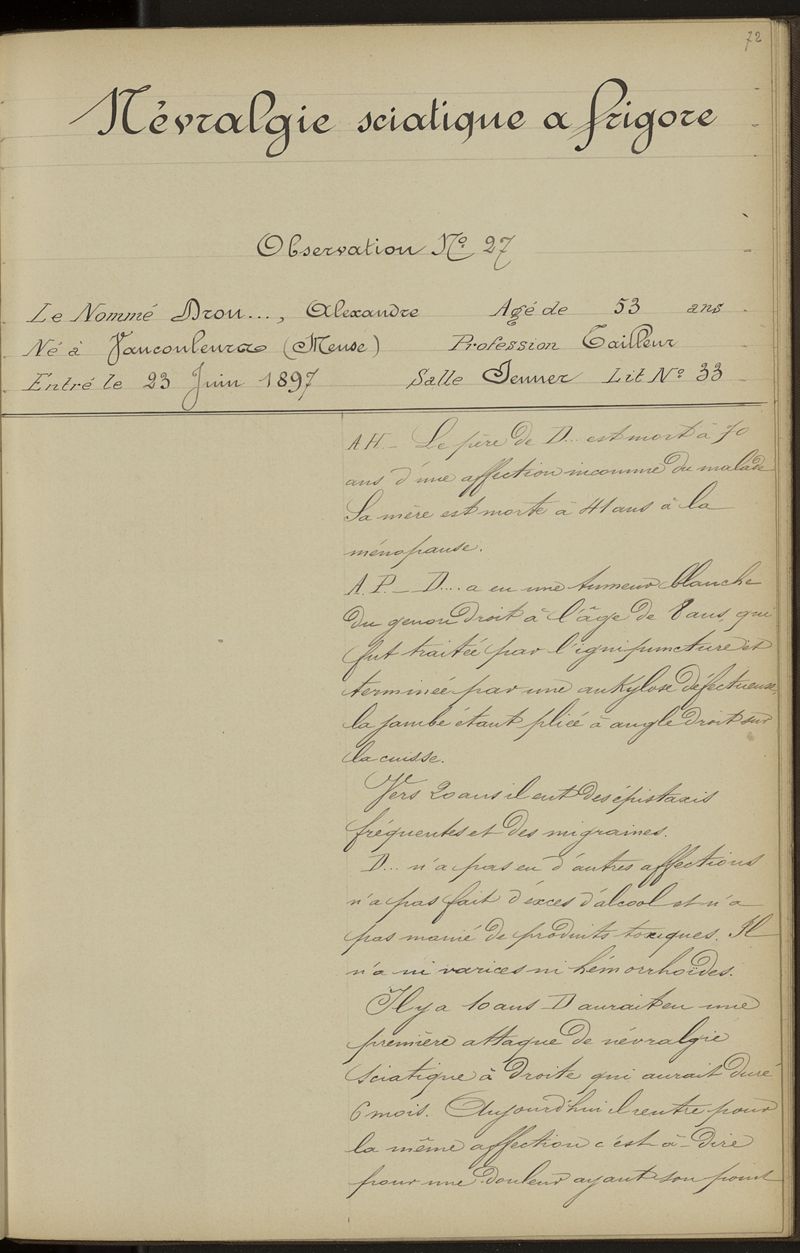 72
Névralgie sciatique a frigore
Observation No. 27
Le Nommé Drou..., Alexandre Agé de 53 ans
Né à Vaucouleurs (Meuse) Profession Tailleur
Entré le 23 Juin 1897 Salle Jenner Lit No. 33
A H _ Le père de D... est mort à 70
ans d'une affection inconnue du malade
Sa mère est morte à 41 ans à la
ménopause.
A. P. _ D.... a eu une tumeur blanche
du genou droit à l'âge de 8 ans, qui
fut traitée par l'ignipuncture et
terminée par une ankylose défectueuse,
la jambe étant pliée à angle droit sur
la cuisse.
Vers 20 ans il eut des épistaxis
fréquentes et des migraines.
D... n'a pas eu d'autres affections
n'a pas fait d'excès d'alcool et n'a
pas manié de produits toxiques. Il
n'a ni varices ni hémorrhoïdes.
Il y a 10 ans D aurait eu une
première attaque de névralgie
sciatique à droite qui aurait duré
6 mois. Aujourd'hui il rentre pour
la même affection c'est-à-dire
pour une douleur ayant son point